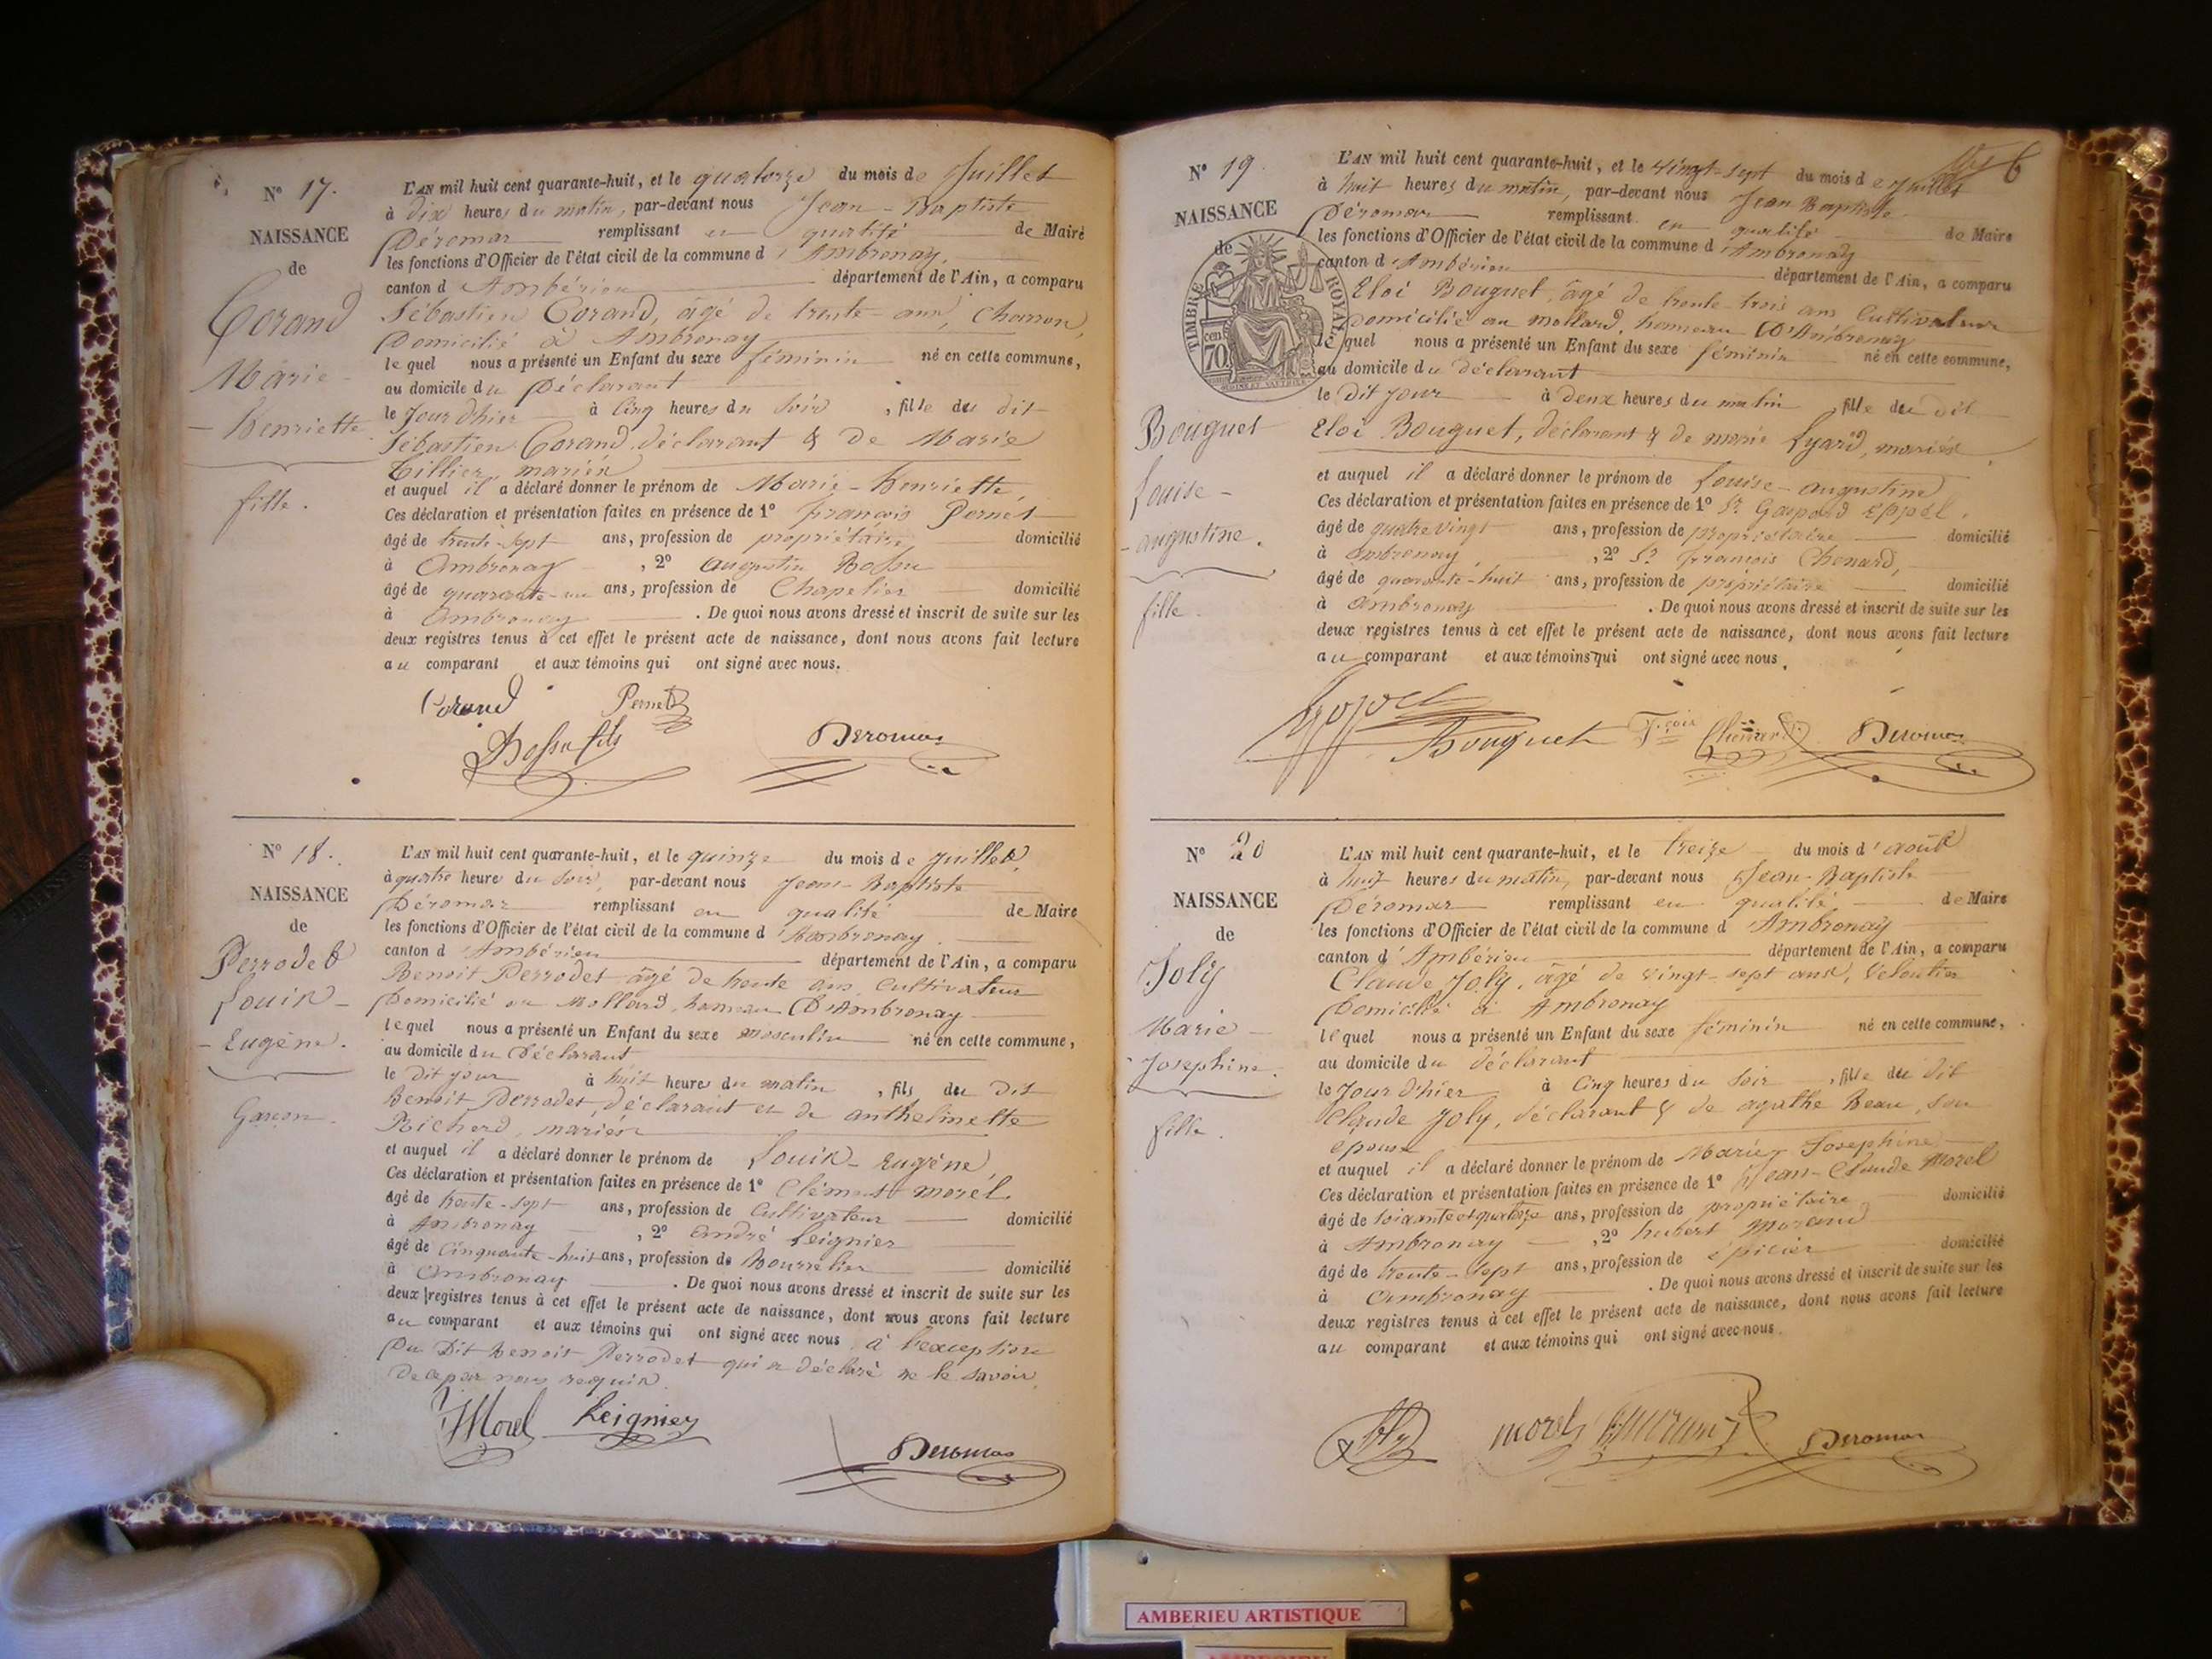 N° 17.
NAISSANCE
de
Corand
Marie-
Henriette
fille.
L'AN mil huit cent quarante-huit, et le quatorze du mois de Juillet
à dix heures du matin, par-devant nous Jean-Baptiste
Déromas remplissant en qualité de Maire
les fonctions d'Officier de l'état civil de la commune d'Ambronay,
canton d'Ambérieu département de l'Ain, a comparu
Sébastien Corand, âgé de trente ans, charron,
Domicilié à Ambronay
lequel nous a présenté un Enfant du sexe féminin né en cette commune,
au domicile du Déclarant
le Jour d'hier à Cinq heures du Soir, fille du dit
Sébastien Corand, déclarant & de Marie
Tillier, mariés
et auquel il a déclaré donner le prénom de Marie-Henriette,
Ces déclaration et présentation faites en présence de 1° François Pernet
âgé de trente-sept ans, profession de propriétaire domicilié
à Ambronay, 2° Augustin Bossu
âgé de quarante-un ans, profession de Chapelier domicilié
à Ambronay. De quoi nous avons dressé et inscrit de suite sur les
deux registres tenus à cet effet le présent acte de naissance, dont nous avons fait lecture
au comparant et aux témoins qui ont signé avec nous.
Corand Pernet
Bossu fils Deromas
N° 18.
NAISSANCE
de
Perrodet
Louis-
Eugène.
Garçon.
L'AN mil huit cent quarante-huit, et le quinze du mois de Juillet,
à quatre heure du soir, par-devant nous Jean-Baptiste
Déromas remplissant en qualité de Maire
les fonctions d'Officier de l'état civil de la commune d'Ambronay.
canton d'Ambérieu département de l'Ain, a comparu
Benoit Perrodet âgé de trente ans, Cultivateur
Domicilié au Mollard, hameau D'Ambronay
lequel nous a présenté un Enfant du sexe masculin né en cette commune,
au domicile du Déclarant
le dit jour à huit heures du matin, fils du dit
Benoit Perrodet, déclarant et de anthelmette
Richerd, mariés
et auquel il a déclaré donner le prénom de Louis-Eugène,
Ces déclaration et présentation faites en présence de 1° Clément Morel
âgé de trente-sept ans, profession de Cultivateur domicilié
à Ambronay, 2° André Leignier
âgé de Cinquante-huit ans, profession de Bourrelier domicilié
à Ambronay. De quoi nous avons dressé et inscrit de suite sur les
deux registres tenus à cet effet le présent acte de naissance, dont nous avons fait lecture
au comparant et aux témoins qui ont signé avec nous à l'exception
Du Dit Benoit Perrodet qui a déclaré ne le savoir
de ce par nous requis.
Morel Leignier
Deromas
6
N° 19.
NAISSANCE
de
TIMBRE ROYAL
70 cen
Bouguet
Louise-
augustine.
fille.
L'AN mil huit cent quarante-huit, et le vingt-sept du mois de juillet
à huit heures du matin, par-devant nous Jean Baptiste
Déromas remplissant en qualité de Maire
les fonctions d'Officier de l'état civil de la commune d'Ambronay
canton d'Ambérieu département de l'Ain, a comparu
Eloi Bouguet, âgé de trente-trois ans Cultivateur
Domicilié au mollard, hameau D'Ambronay
lequel nous a présenté un Enfant du sexe féminin né en cette commune,
au domicile du déclarant
le dit jour à deux heures du matin fille du dit
Eloi Bouguet, déclarant & de marie Lyard, mariés
et auquel il a déclaré donner le prénom de Louise-augustine
Ces déclaration et présentation faites en présence de 1° Sr. Gaspard Eppel,
âgé de quatre vingt ans, profession de propriétaire domicilié
à Ambronay, 2° Sr. François Chenard,
âgé de quarante-huit ans, profession de propriétaire domicilié
à Ambronay. De quoi nous avons dressé et inscrit de suite sur les
deux registres tenus à cet effet le présent acte de naissance, dont nous avons fait lecture
au comparant et aux témoins qui ont signé avec nous.
Bouguet Chenard Deromas
N° 20
NAISSANCE
de
Joly
Marie-
Josephine.
fille.
L'AN mil huit cent quarante-huit, et le treize du mois d'août
à huit heures du matin, par-devant nous Jean-Baptiste
Déromas remplissant en qualité de Maire
les fonctions d'Officier de l'état civil de la commune d'Ambronay
canton d'Ambérieu département de l'Ain, a comparu
Claude Joly, âgé de vingt-sept ans, Veloutier
Domicilié à Ambronay
lequel nous a présenté un Enfant du sexe féminin né en cette commune,
au domicile du déclarant
le Jour d'hier à Cinq heures du Soir, fille du dit
Claude Joly, déclarant & de agathe Beau, son
épouse
et auquel il a déclaré donner le prénom de Marie-Josephine
Ces déclaration et présentation faites en présence de 1° Jean-Claude Morel
âgé de soixante et quatorze ans, profession de propriétaire domicilié
à Ambronay, 2° hubert Morand
âgé de trente-sept ans, profession de épicier domicilié
à Ambronay. De quoi nous avons dressé et inscrit de suite sur les
deux registres tenus à cet effet le présent acte de naissance, dont nous avons fait lecture
au comparant et aux témoins qui ont signé avec nous.
Joly morel h. morand Deromas
AMBERIEU ARTISTIQUE